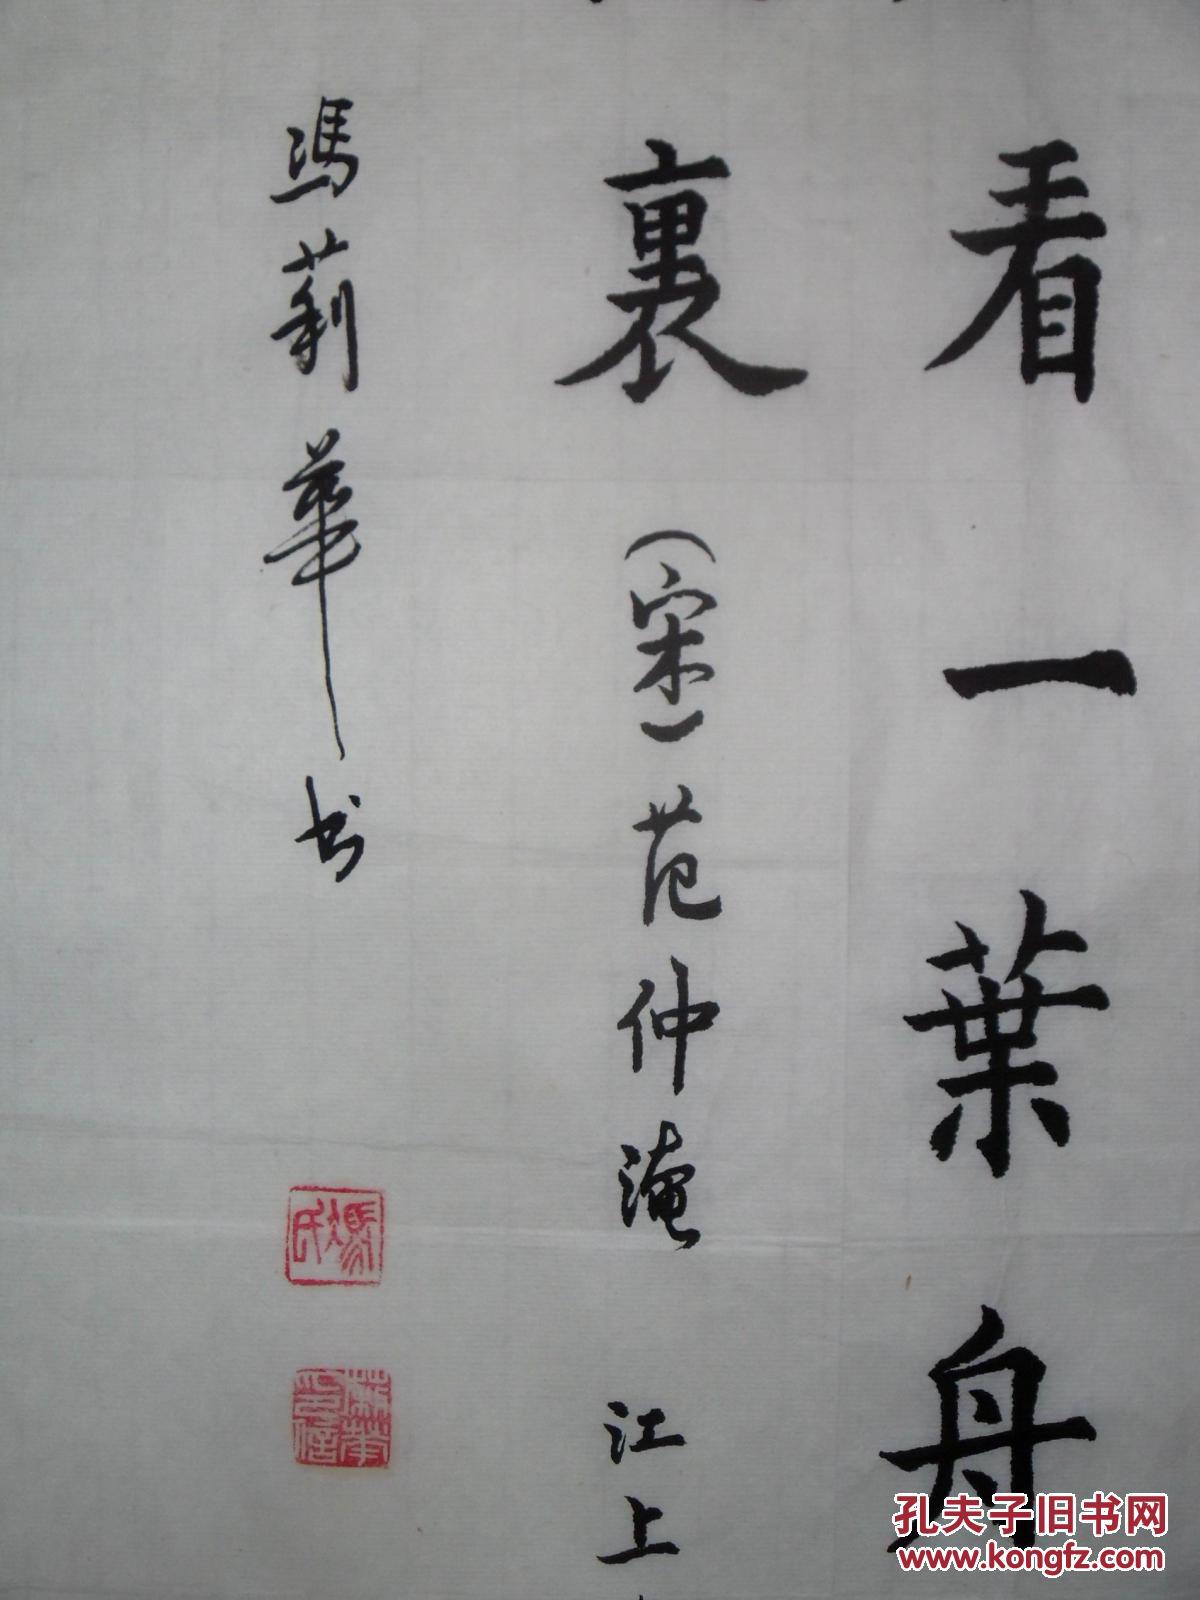 看一葉舟
裏（宋）范仲淹 江上
馮莉華书
馮氏
莉華印信
孔夫子旧书网
www.kongfz.com